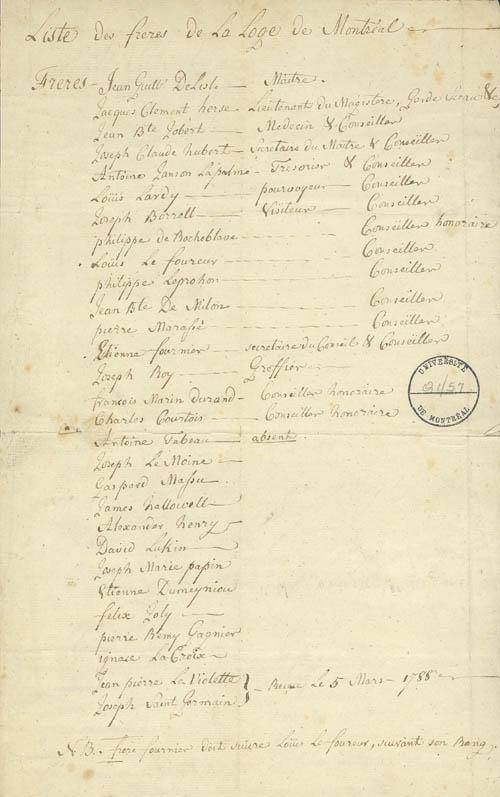 Liste des freres de La Loge de Montréal
Freres - Jean Guill DeLisle - Maître.
Jacques Clement herse - Lieutenant du Magistere, Garde Sceau &c
Jean Bte Jobert - Medecin & Conseiller
Joseph Claude hubert - Secretaire du Maitre & Conseïller
Antoine Janson Lapalme - Tresorier & Conseiller
Loüis Lardy - pourvoyeur - Conseiller
Joseph Borrell - Visiteur - Conseiller
philippe de Rocheblave - Conseïller honoraire
Loüis Le foureur - Conseiller
philippe Leprohon - Conseiller
Jean Bte De Milon - Conseiller
pierre Marassé - Conseiller
Etienne fournier - secretaire du Conseil & Conseïller
Joseph Roy - Greffier
françois Marin Durand - Conseiller honoraire
Charles Courtois - Conseiller honoraire
Antoine Tabeau - absent.
Joseph Le Moine
Gaspard Massu
James hallowell
Alexander henry
David Lukin
Joseph Marie papin
Etienne Dumeyniou
felix Joly
pierre Remy Gagnier
ignace LaCroix
Jean pierre La Violette } - Reçus Le 5 Mars - 1788
Joseph Saint Germain
N.B. frere fournier doit suivre Loüis Le foureur, suivant son Rang.
UNIVERSITÉ
DE MONTRÉAL